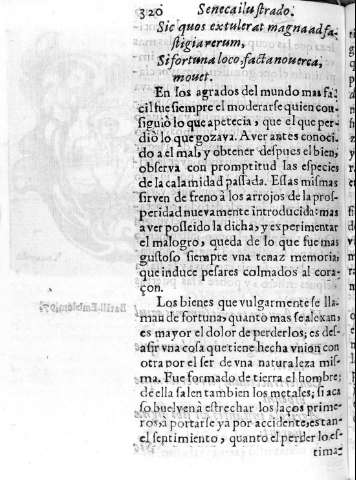 320 Seneca ilustrado.
Sic quos extulerat magna ad fa-
stigia rerum,
Si fortuna loco, facta noverca,
movet.
En los agrados del mundo mas fa-
cil fue siempre el moderarse quien con-
siguiò lo que apetecia, que el que per-
diò lo que gozava. Aver antes conoci-
do a el mal, y obtener despues el bien,
observa con promptitud las especies
de la calamidad passada. Estas mismas
sirven de freno à los arrojos de la pros-
peridad nuevamente introducida: mas
aver posseido la dicha, y experimentar
el malogro, queda de lo que fue mas
gustoso siempre vna tenaz memoria,
que induce pesares colmados al cora-
çon.
Los bienes que vulgarmente se lla-
man de fortuna, quanto mas se alexan,
es mayor el dolor de perderlos; es des-
asir vna cosa que tiene hecha vnion con
otra por el ser de vna naturaleza mis-
ma. Fue formado de tierra el hombre;
de ella salen tambien los metales; si aca
so buelven à estrechar los laços prime-
ros, à portarse ya por accidente, es tan-
el sentimiento, quanto el perder lo es-
tima-